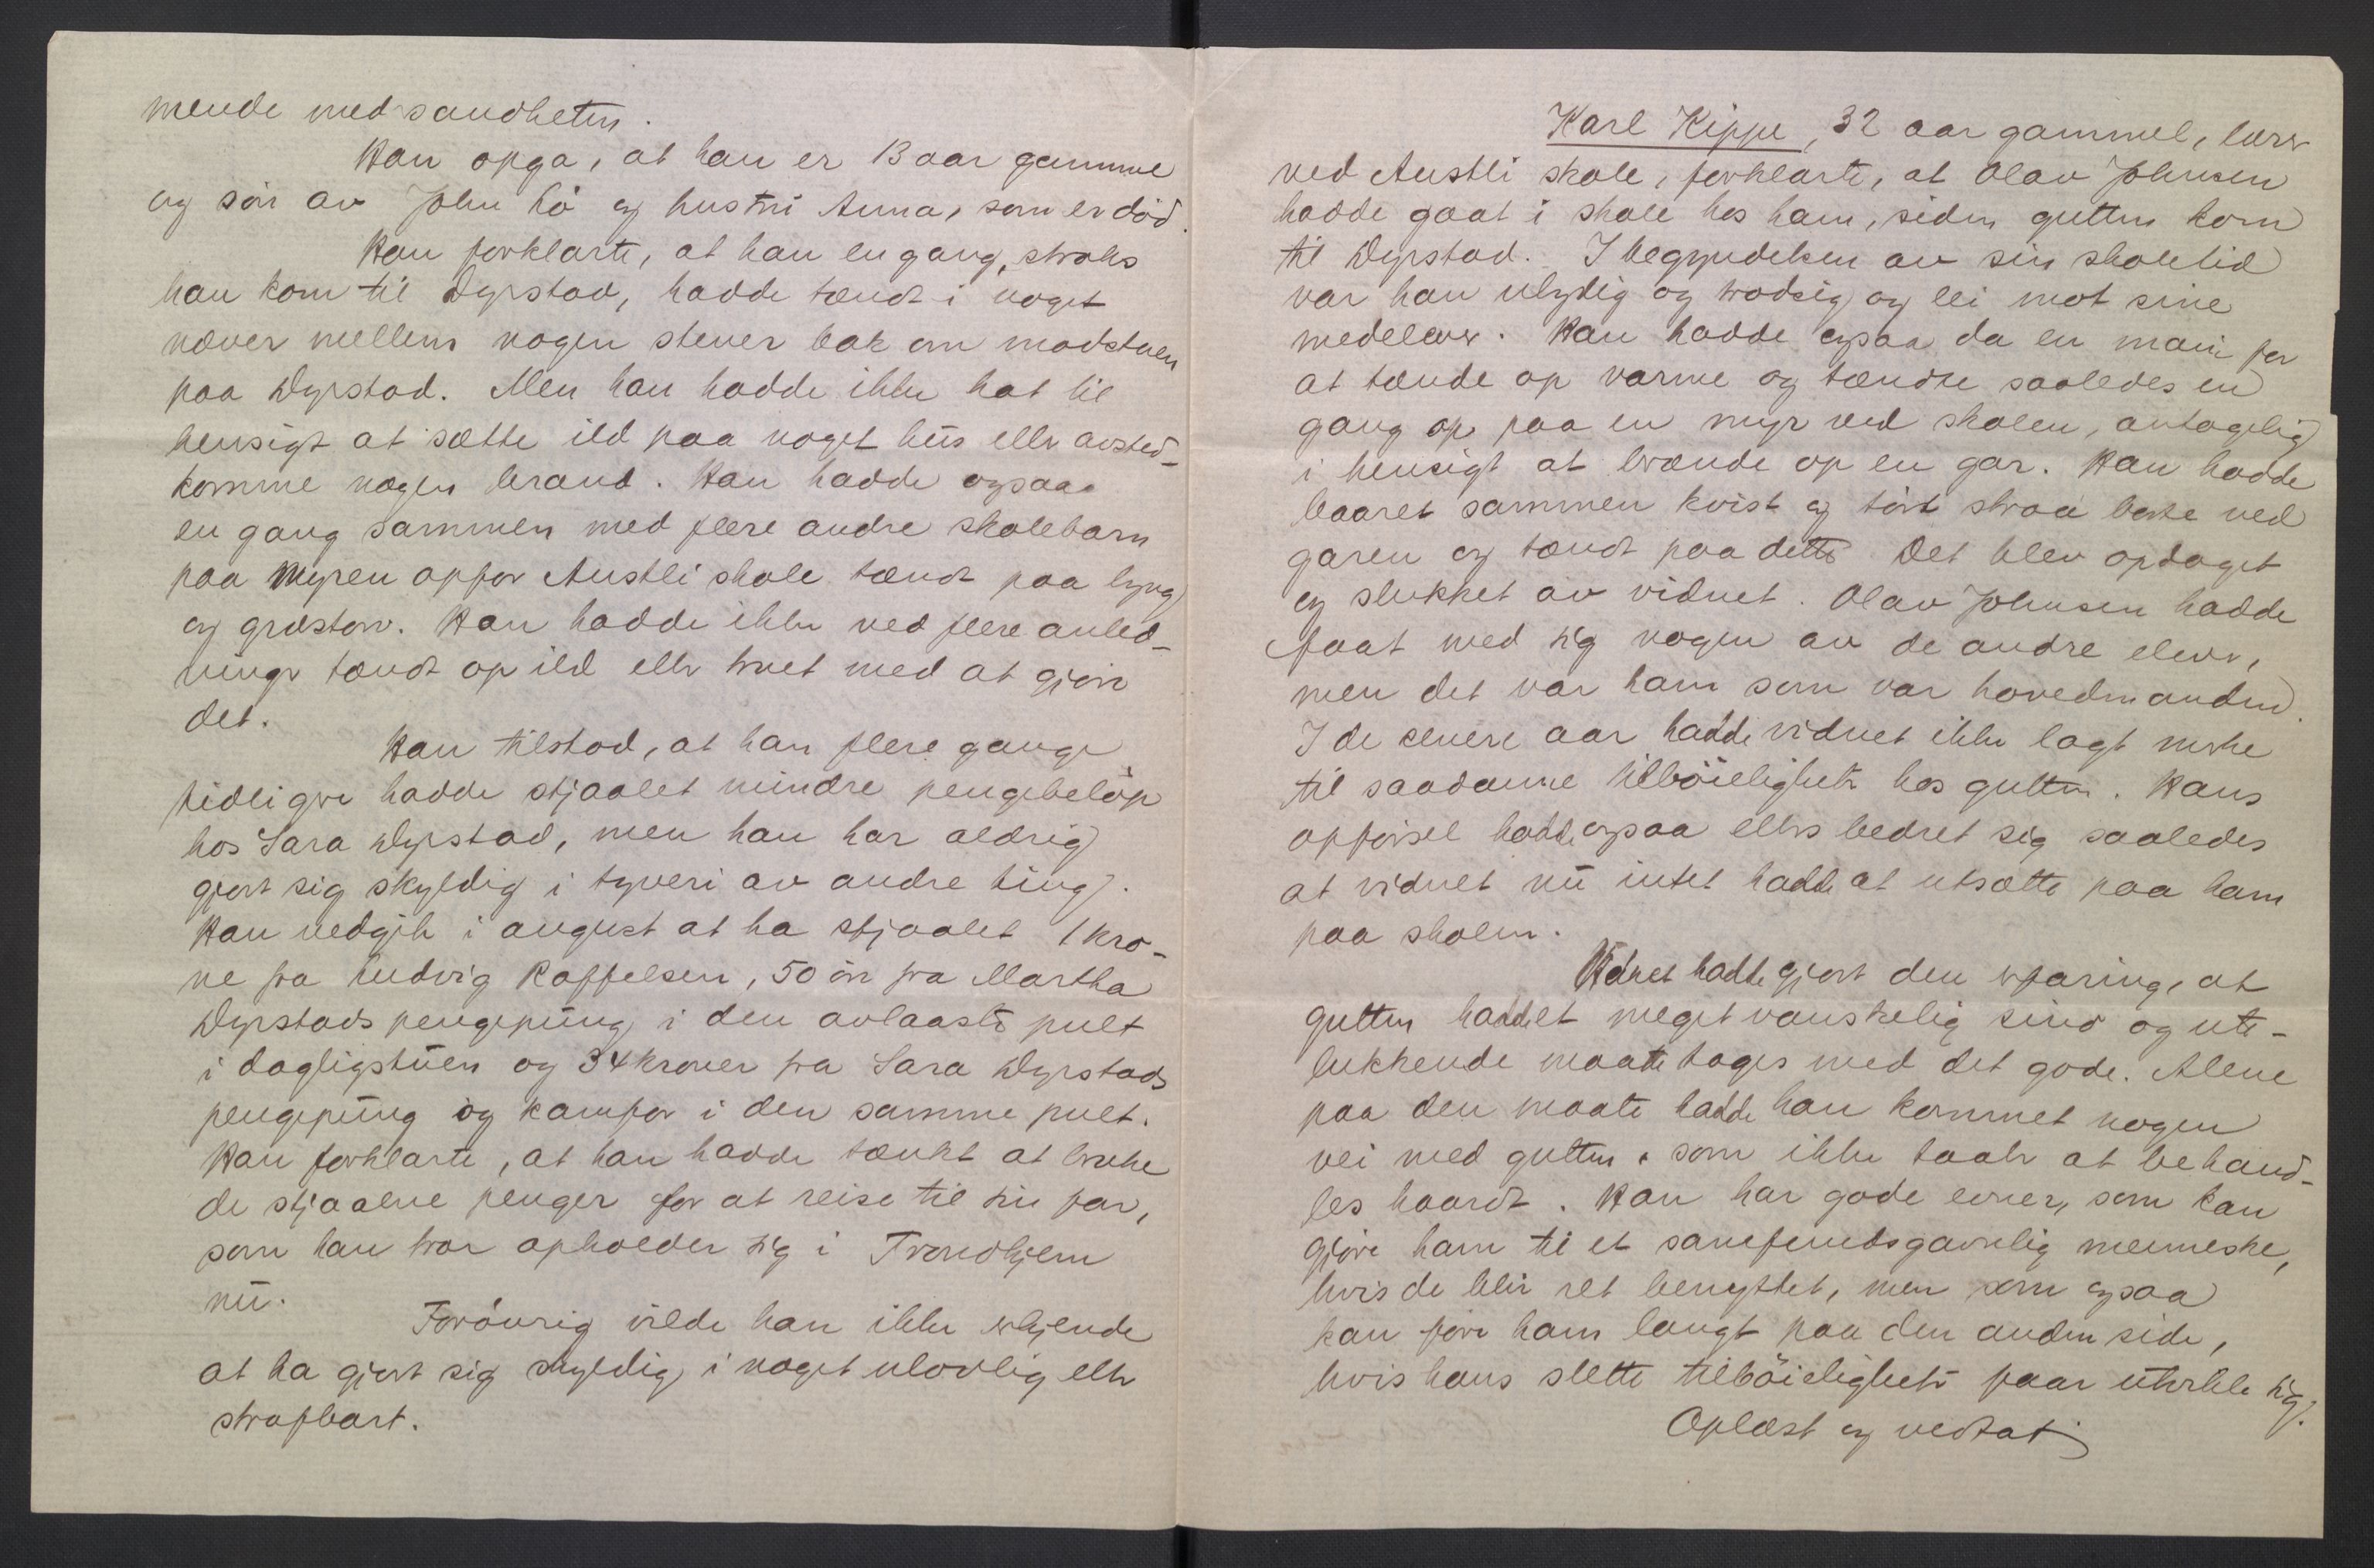 mende med sandheten.
Han opga, at han er 13 aar gammel
og søn av John Lø og hustru Anna, som er død.
Han forklarte, at han en gang, straks
han kom til Dyrstad, hadde tændt i noget
næver mellem nogen stener bak om madstuen
paa Dyrstad. Men han hadde ikke hat til
hensigt at sætte ild paa noget hus eller avsted-
komme nogen brand. Han hadde ogsaa
en gang sammen med flere andre skolebarn
paa Myren opfor Austli skole tændt paa lyng
og græstorv. Han hadde ikke ved flere anled-
ninger tændt op ild eller truet med at gjøre
det.
Han tilstod, at han flere ganger
tidligere hadde stjaalet mindre pengebeløp
hos Sara Dyrstad, men han har aldrig
gjort sig skyldig i tyveri av andre ting.
Han vedgik i august at ha stjaalet 1 kro-
ne fra Ludvig Koffelsen, 50 øre fra Martha
Dyrstads pengepung i den avlaaste pult
i dagligstuen og 34 kroner fra Sara Dyrstads
pengepung og kamfer i den samme pult.
Han forklarte, at han hadde tænkt at bruke
de stjaalne penger for at reise til sin far,
som han tror opholder sig i Trondhjem
nu.
Forøvrig vilde han ikke erkjende
at ha gjort sig skyldig i noget ulovlig eller
strafbart.
Karl Kippe, 32 aar gammel, lærer
ved Austli skole, forklarte, at Olav Johnsen
hadde gaat i skole hos ham, siden gutten kom
til Dyrstad. I begyndelsen av sin skoletid
var han ulydig og trodsig og lei mot sine
medelever. Han hadde ogsaa da en mani for
at tænde op varme og tændte saaledes en
gang op paa en myr ved skolen, antagelig
i hensigt at brænde op en gar. Han hadde
baaret sammen kvist og tørt straa borte ved
garen og tændt paa dette. Det blev opdaget
og slukket av vidnet. Olav Johnsen hadde
faat med sig nogen av de andre elever,
men det var ham som var hovedmanden.
I de senere aar hadde vidnet ikke lagt merke
til saadanne tilbøieligheter hos gutten. Hans
opførsel hadde ogsaa ellers bedret sig saaledes
at vidnet nu intet hadde at utsætte paa ham
paa skolen.
Vidnet hadde gjort den erfaring, at
gutten hadde et meget vanskelig sind og ute-
lukkende maatte tages med det gode. Alene
paa den maate hadde han kommet nogen
vei med gutten, som ikke taaler at behand-
les haardt. Han har gode evner, som kan
gjøre ham til et samfundsgavnlig menneske,
hvis de blir ret benyttet, men som ogsaa
kan føre ham langt paa den anden side,
hvis hans slette tilbøieligheter faar utvikle sig.
Oplæst og vedtat